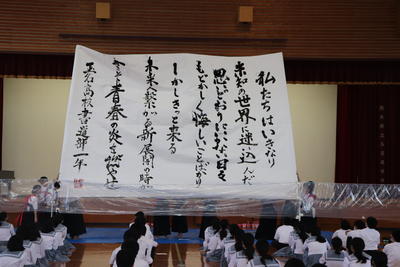 私たちはいきなり
未知の世界に迷い込んだ
思いどおりにいかない日々
もどかしく悔しいことばかり
しかしきっと来る
未来へ繋がる新展開の時が
今こそ青春の炎を
玉名高校書道部一年